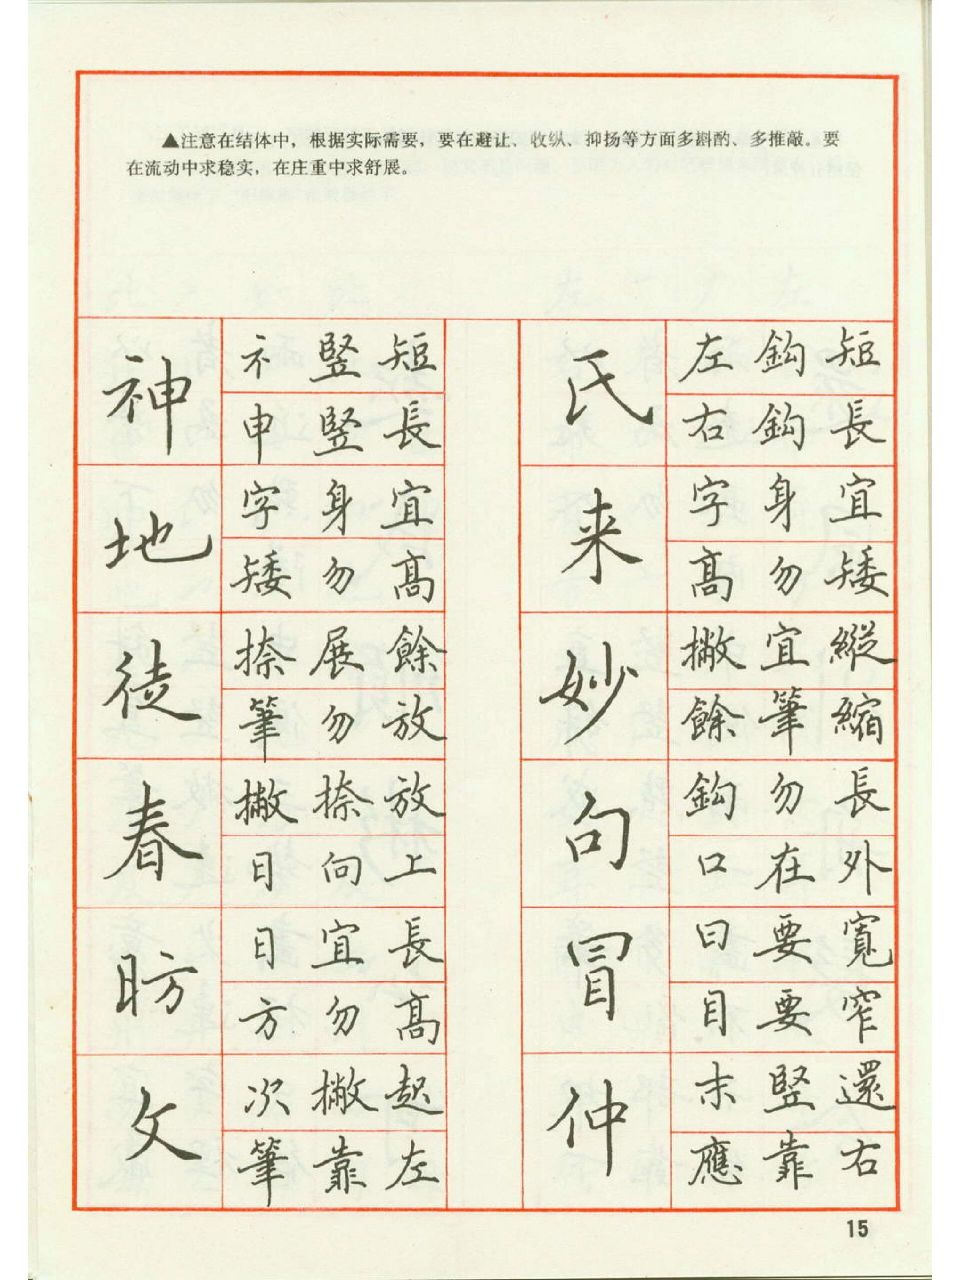 ▲注意在结体中，根据实际需要，要在避让、收纵、抑扬等方面多斟酌、多推敲。要
在流动中求稳实，在庄重中求舒展。
神
礻竪短
申竪長
地
字身宜
矮勿高
徒
捺展餘
筆勿放
春
撇捺放
日向上
昉
日宜長
方勿高
文
次撇起
筆靠左
氏
左鈎短
右鈎長
来
字身宜
高勿矮
妙
撇宜縱
餘筆縮
句
鈎勿長
口在外
冒
曰要寬
目要窄
仲
末竪還
應靠右
15